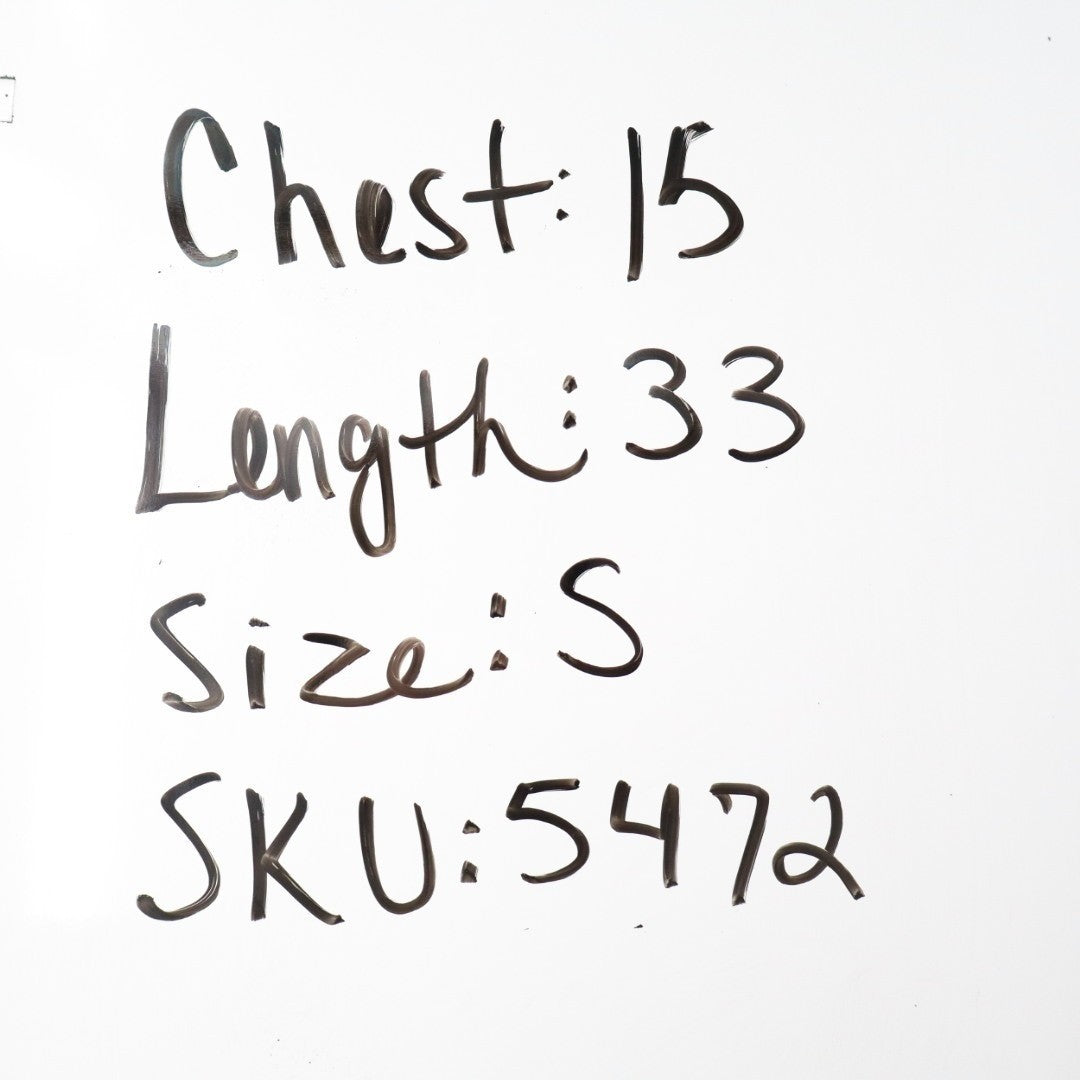 Chest: 15
Length: 33
Size: S
SKU: 5472